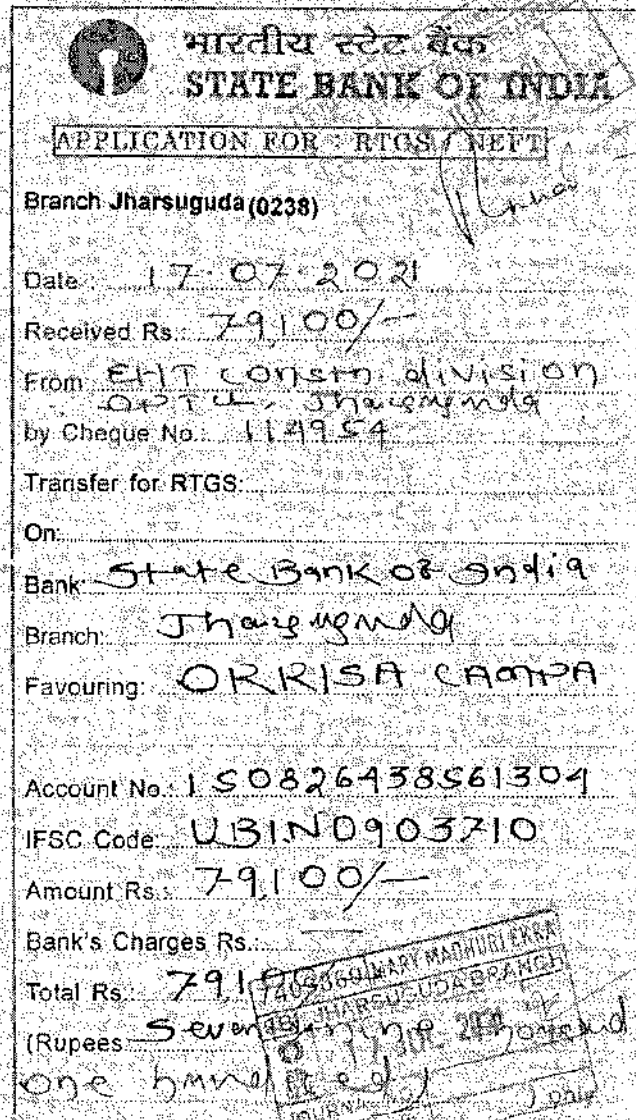 भारतीय स्टेट बैंक
STATE BANK OF INDIA
APPLICATION FOR : RTGS / NEFT
Branch Jharsuguda (0238)
Date : 17.07.2021
Received Rs.: 79,100/-
From EHT constn. division
OPTCL, Jharsuguda
by Cheque No.: 114954
Transfer for RTGS:
On:
Bank: State Bank of India
Branch: Jharsuguda
Favouring: ORRISA CAMPA
Account No.: 150826438561304
IFSC Code: UBIN0903710
Amount Rs.: 79,100/-
Bank's Charges Rs.:
Total Rs.: 79,1
MARY MADHURI EKKA
JHARSUGUDA BRANCH
17 JUL
(Rupees: Seventy nine thousand
one hundred) only